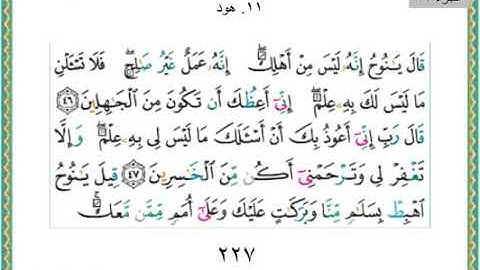 ١١. هود
قَالَ يَـٰنُوحُ إِنَّهُۥ لَيْسَ مِنْ أَهْلِكَ ۖ إِنَّهُۥ عَمَلٌ غَيْرُ صَـٰلِحٍ ۖ فَلَا تَسْـَٔلْنِ
مَا لَيْسَ لَكَ بِهِۦ عِلْمٌ ۖ إِنِّىٓ أَعِظُكَ أَن تَكُونَ مِنَ ٱلْجَـٰهِلِينَ ٤٦
قَالَ رَبِّ إِنِّىٓ أَعُوذُ بِكَ أَنْ أَسْـَٔلَكَ مَا لَيْسَ لِى بِهِۦ عِلْمٌ ۖ وَإِلَّا
تَغْفِرْ لِى وَتَرْحَمْنِىٓ أَكُن مِّنَ ٱلْخَـٰسِرِينَ ٤٧ قِيلَ يَـٰنُوحُ
ٱهْبِطْ بِسَلَـٰمٍ مِّنَّا وَبَرَكَـٰتٍ عَلَيْكَ وَعَلَىٰٓ أُمَمٍ مِّمَّن مَّعَكَ ۚ
٢٢٧